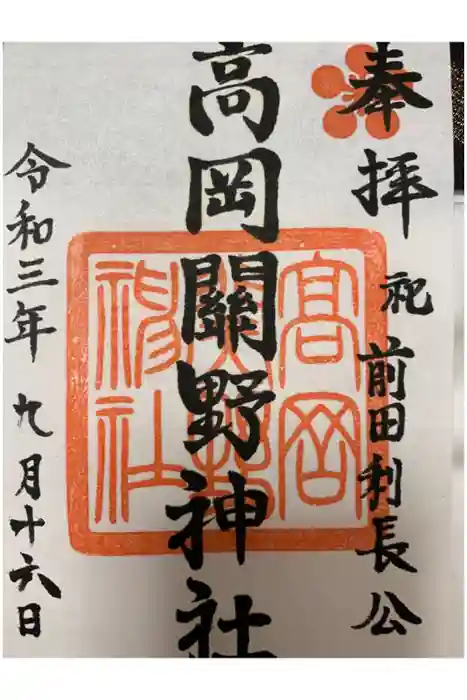 奉拝
祀前田利長公
高岡關野神社
高岡
令和三年九月十六日